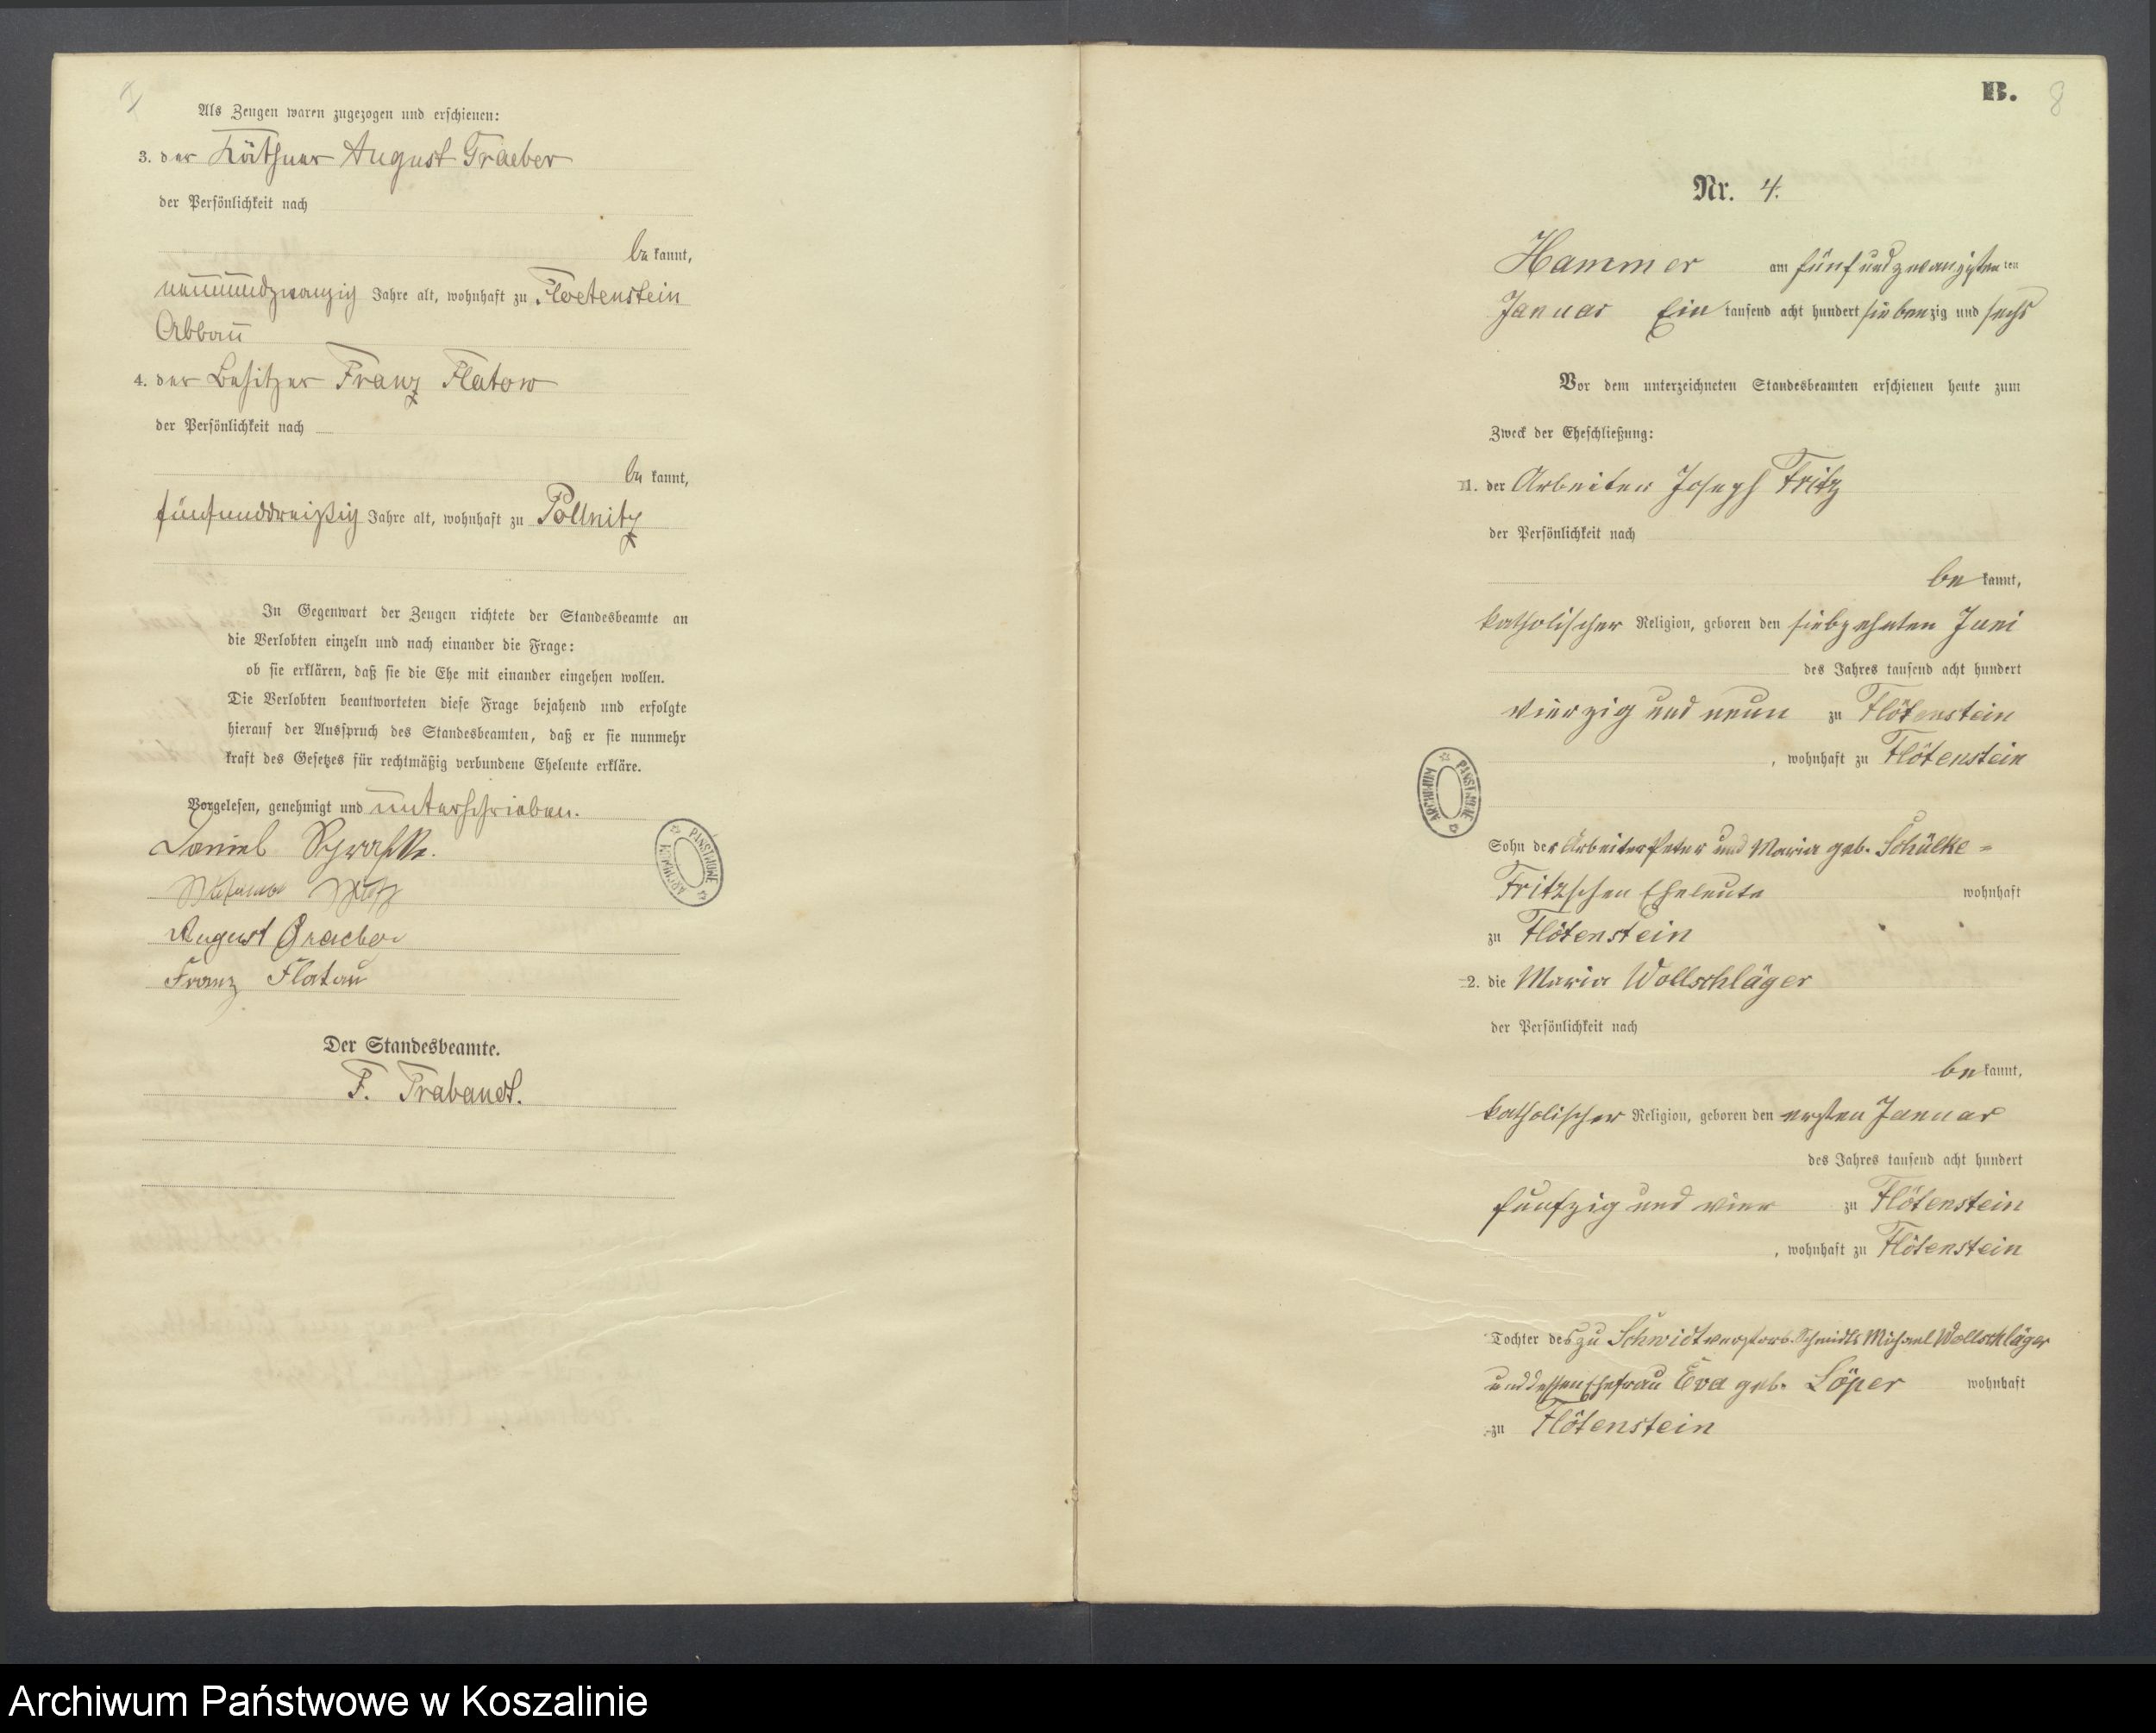 Als Zeugen waren zugezogen und erschienen:
3. der Käthner August Graeber
der Persönlichkeit nach
be kannt,
neunundzwanzig Jahre alt, wohnhaft zu Floetenstein
Abbau
4. der Besitzer Franz Flatow
der Persönlichkeit nach
be kannt,
fünfunddreißig Jahre alt, wohnhaft zu Pollnitz
In Gegenwart der Zeugen richtete der Standesbeamte an
die Verlobten einzeln und nach einander die Frage:
ob sie erklären, daß sie die Ehe mit einander eingehen wollen.
Die Verlobten beantworteten diese Frage bejahend und erfolgte
hierauf der Ausspruch des Standesbeamten, daß er sie nunmehr
kraft des Gesetzes für rechtmäßig verbundene Eheleute erkläre.
Vorgelesen, genehmigt und unterschrieben.
Daniel
August Graeber
Franz Flatau
ARCHIWUM PAŃSTWOWE
Der Standesbeamte.
F. Trabandt.
B. 8
Nr. 4.
Hammer am fünfundzwanzigsten ten
Januar Ein tausend acht hundert siebenzig und sechs
Vor dem unterzeichneten Standesbeamten erschienen heute zum
Zweck der Eheschließung:
1. der Arbeiter Joseph Fritz
der Persönlichkeit nach
be kannt,
katholischer Religion, geboren den siebzehnten Juni
des Jahres tausend acht hundert
vierzig und neun zu Flötenstein
, wohnhaft zu Flötenstein
ARCHIWUM PAŃSTWOWE
Sohn der Arbeiter Peter und Maria geb. Schülke=
Fritzschen Eheleute wohnhaft
zu Flötenstein
2. die Maria Wollschläger
der Persönlichkeit nach
be kannt,
katholischer Religion, geboren den ersten Januar
des Jahres tausend acht hundert
funfzig und vier zu Flötenstein
, wohnhaft zu Flötenstein
Tochter des zu verstorb. Schmidts Michael Wollschläger
und dessen Ehefrau Eva geb. Löper wohnhaft
zu Flötenstein
Archiwum Państwowe w Koszalinie